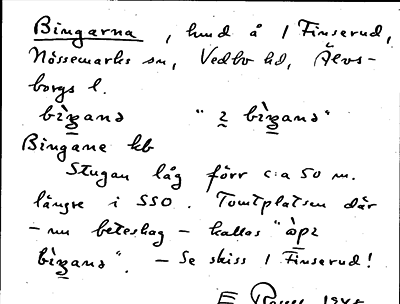 Bingarna, hmd å 1 Finserud,
Nössemarks sn, Vedbo hd, Älvs-
borgs l.
bìŋanə " 2 bìŋanə"
Bingane kb
Stugan låg förr c:a 50 m.
längre i SSO. Tomtplatsen där
- nu beteshag - kallas "ὰp2
bìŋanə". - Se skiss 1 Finserud!
E